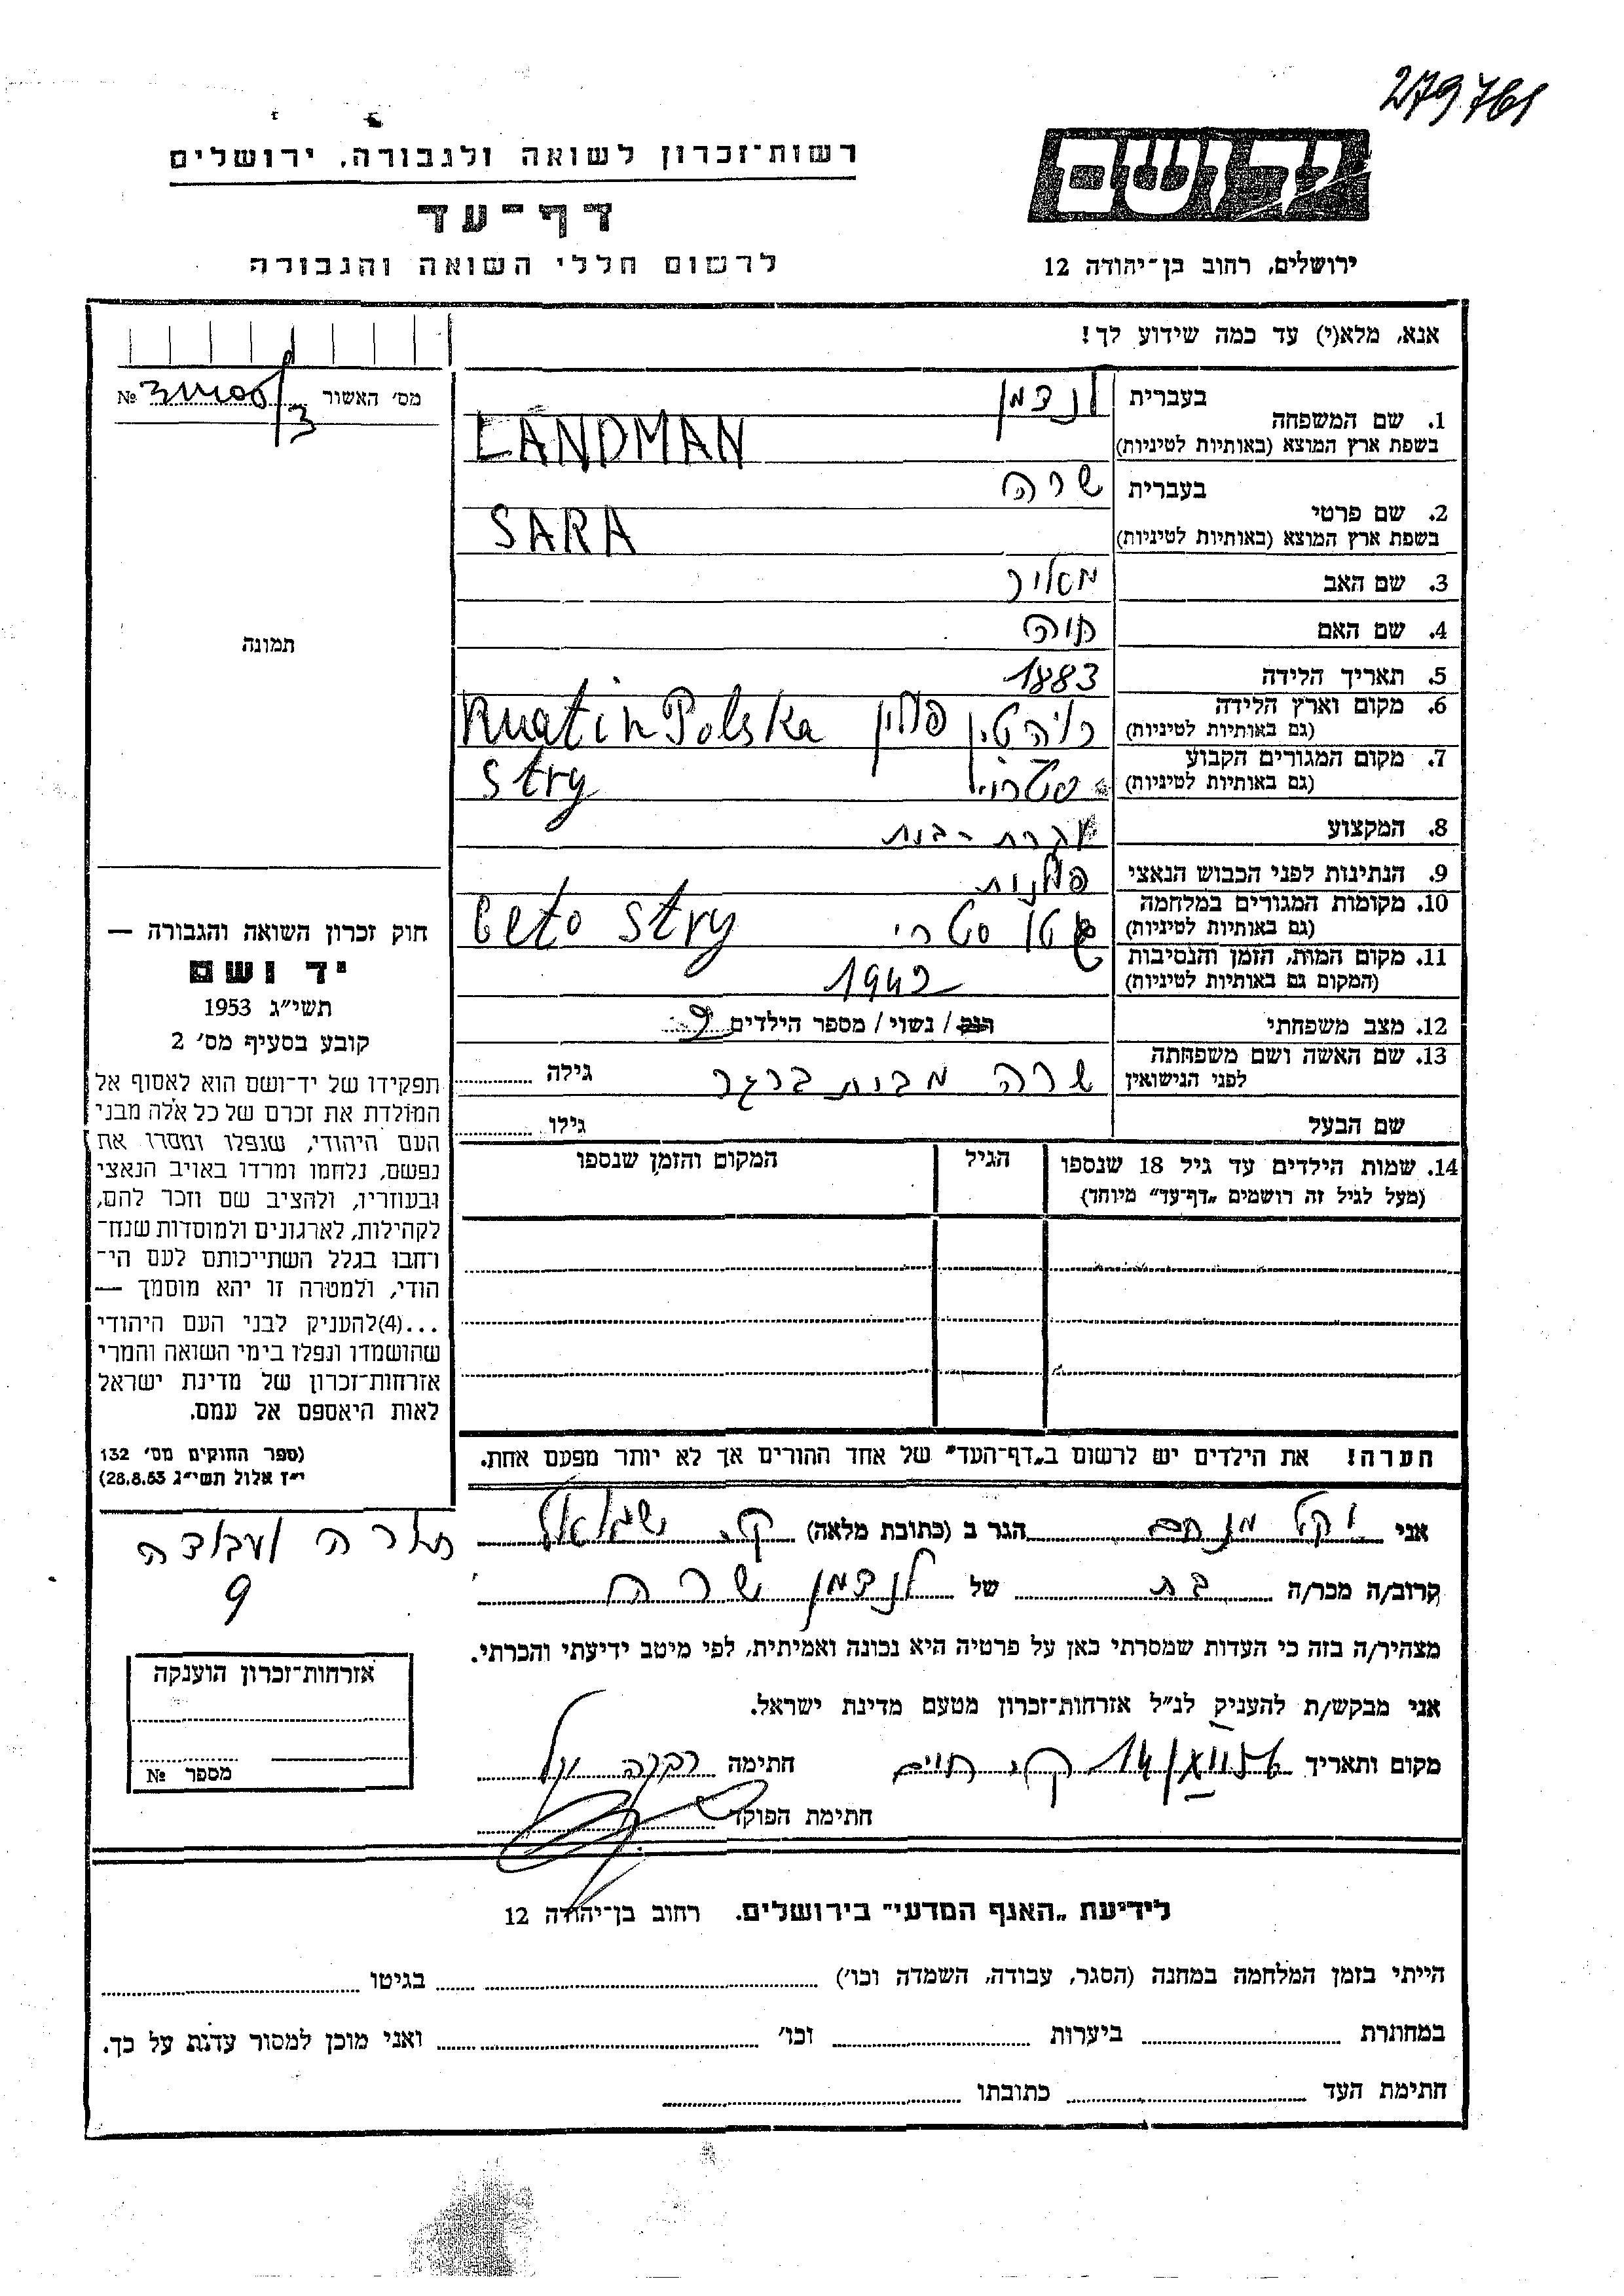 279761
ידושם
רשות־זכרון לשואה ולגבורה, ירושלים
דף־עד
לרשום חללי השואה והגבורה
ירושלים, רחוב בן־יהודה 12
אנא, מלא(י) עד כמה שידוע לך!
מס׳ האשור № /3
1. שם המשפחה בעברית לנדמן
בשפת ארץ המוצא (באותיות לטיניות) LANDMAN
2. שם פרטי בעברית שרה
בשפת ארץ המוצא (באותיות לטיניות) SARA
3. שם האב מאיר
4. שם האם חוה
5. תאריך הלידה 1883
6. מקום וארץ הלידה פולין Polska
(גם באותיות לטיניות)
7. מקום המגורים הקבוע Stry
(גם באותיות לטיניות)
8. המקצוע עקרת-בית
9. הנתינות לפני הכבוש הנאצי פולנית
10. מקומות המגורים במלחמה גטו סטרי Geto Stry
(גם באותיות לטיניות)
11. מקום המות, הזמן והנסיבות 1942
(המקום גם באותיות לטיניות)
12. מצב משפחתי רוק / נשוי / מספר הילדים 9
13. שם האשה ושם משפחתה
לפני הנישואין שרה מבית ברגר גילה
שם הבעל גילו
14. שמות הילדים עד גיל 18 שנספו הגיל המקום והזמן שנספו
(מעל לגיל זה רושמים „דף־עד״ מיוחד)
הערה! את הילדים יש לרשום ב„דף־העד״ של אחד ההורים אך לא יותר מפעם אחת.
תמונה
חוק זכרון השואה והגבורה —
יד ושם
תשי״ג 1953
קובע בסעיף מס׳ 2
תפקידו של יד־ושם הוא לאסוף אל
המולדת את זכרם של כל אלה מבני
העם היהודי, שנפלו ומסרו את
נפשם, נלחמו ומרדו באויב הנאצי
ובעוזריו, ולהציב שם וזכר להם,
לקהילות, לארגונים ולמוסדות שנח־
רחבו בגלל השתייכותם לעם הי־
הודי, ולמטרה זו יהא מוסמך —
...(4)להעניק לבני העם היהודי
שהושמדו ונפלו בימי השואה והמרי
אזרחות־זכרון של מדינת ישראל
לאות היאספם אל עמם.
(ספר החוקים מס׳ 132
י״ז אלול תשי״ג 28.8.53)
אני הגר ב (כתובת מלאה) ק. שמואל
תורה ועבודה
9
קרוב/ה מכר/ה בת של לנדמן שרה
מצהיר/ה בזה כי העדות שמסרתי כאן על פרטיה היא נכונה ואמיתית, לפי מיטב ידיעתי והכרתי.
אני מבקש/ת להעניק לנ״ל אזרחות־זכרון מטעם מדינת ישראל.
מקום ותאריך ק. חיים חתימה רבקה
חתימת הפוקד
אזרחות־זכרון הוענקה
מספר №
לידיעת „האגף המדעי״ בירושלים. רחוב בן־יהודה 12
הייתי בזמן המלחמה במחנה (הסגר, עבודה, השמדה וכו׳) בגיטו
במחתרת ביערות וכו׳ ואני מוכן למסור עדות על כך.
חתימת העד כתובתו